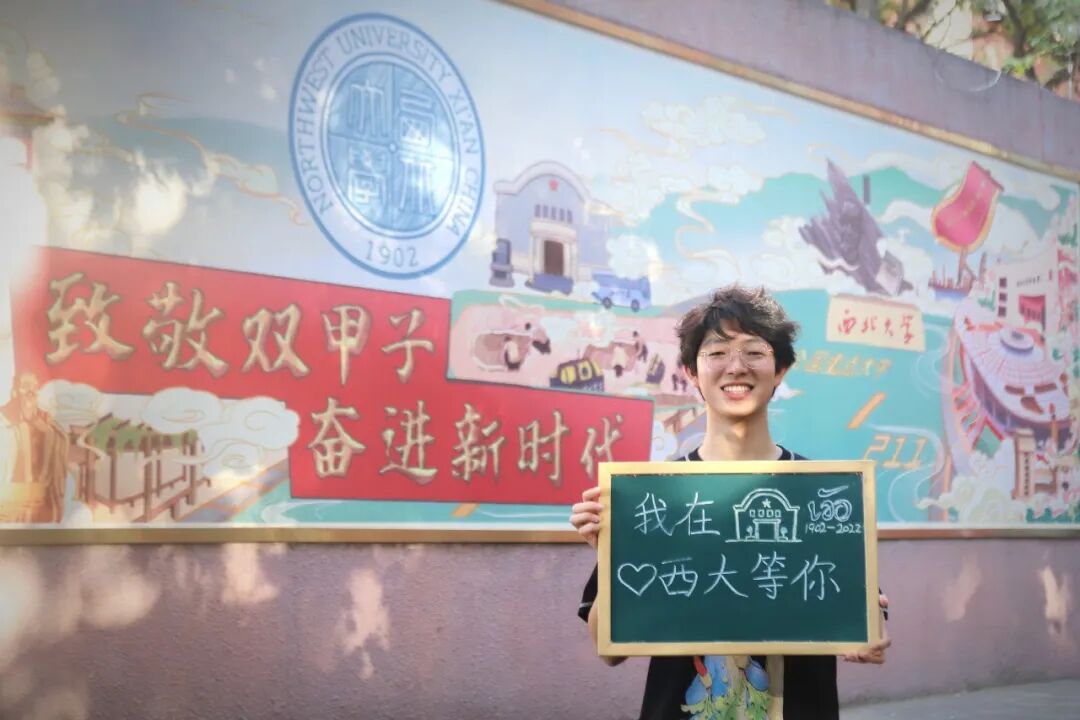 NORTHWEST UNIVERSITY XI'AN CHINA
1902
致敬双甲子
奋进新时代
西北大学
211
我在
1902-2022
♡西大等你